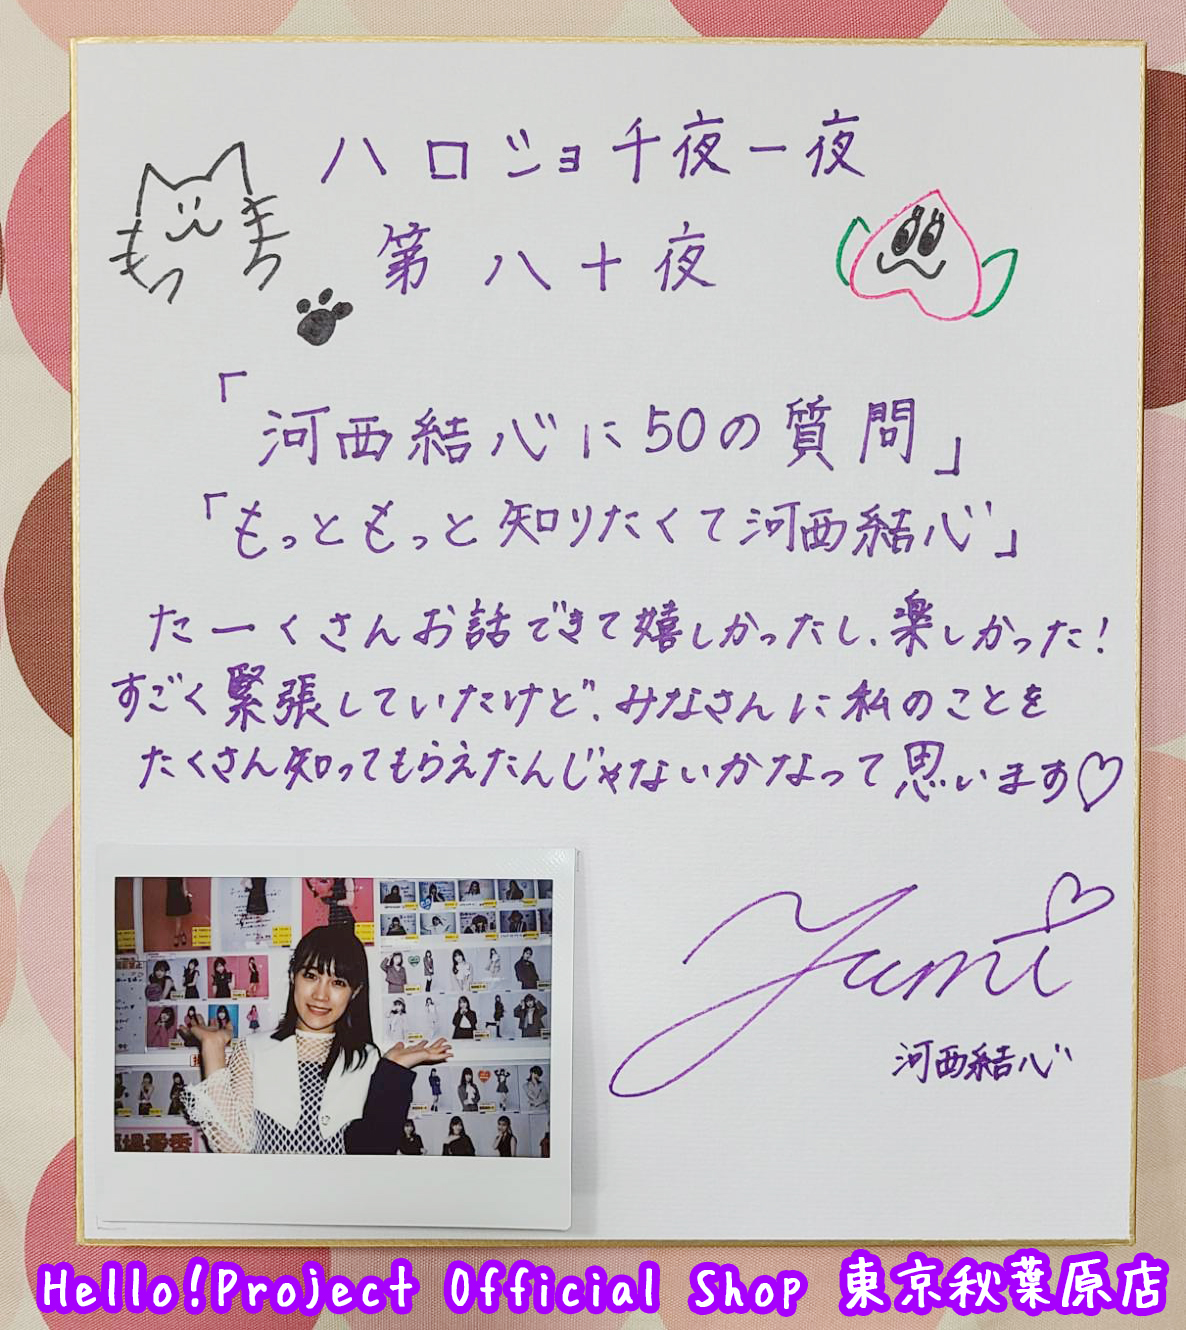 ハロショ千夜一夜
もっ
もっち
第八十夜
「河西結心に50の質問」
「もっともっと知りたくて河西結心」
たーくさんお話できて嬉しかったし、楽しかった!
すごく緊張していたけど、みなさんに私のことを
たくさん知ってもらえたんじゃないかなって思います♡
Yumi
河西結心
Hello!Project Official Shop 東京秋葉原店